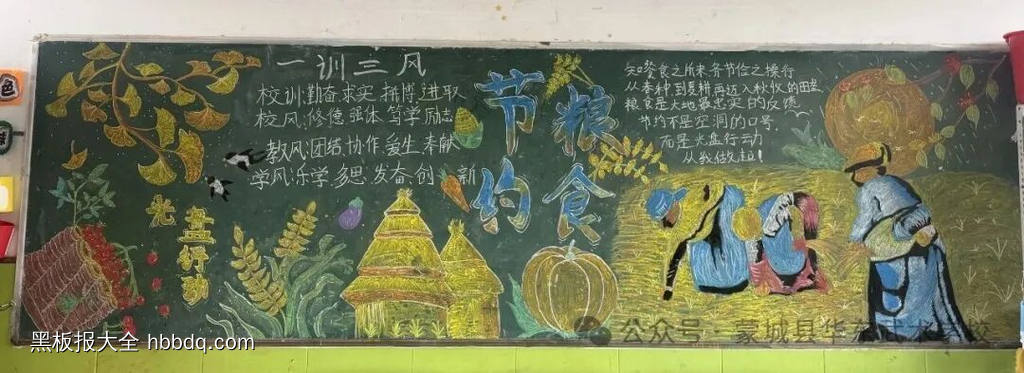 一训三风
校训:勤奋、求实、拼搏、进取
校风:修德、强体、笃学、励志
教风:团结、协作、爱生、奉献
学风:乐学、多思、发奋、创新
节约
粮食
光盘行动
知餐食之所来,务节俭之操行
从春种到夏耕再迈入秋收的田埂
粮食是大地最忠实的反馈
节约不是空洞的口号
而是光盘行动
从我做起!
黑板报大全 hbbdq.com
公众号·蒙城县华东武术学校